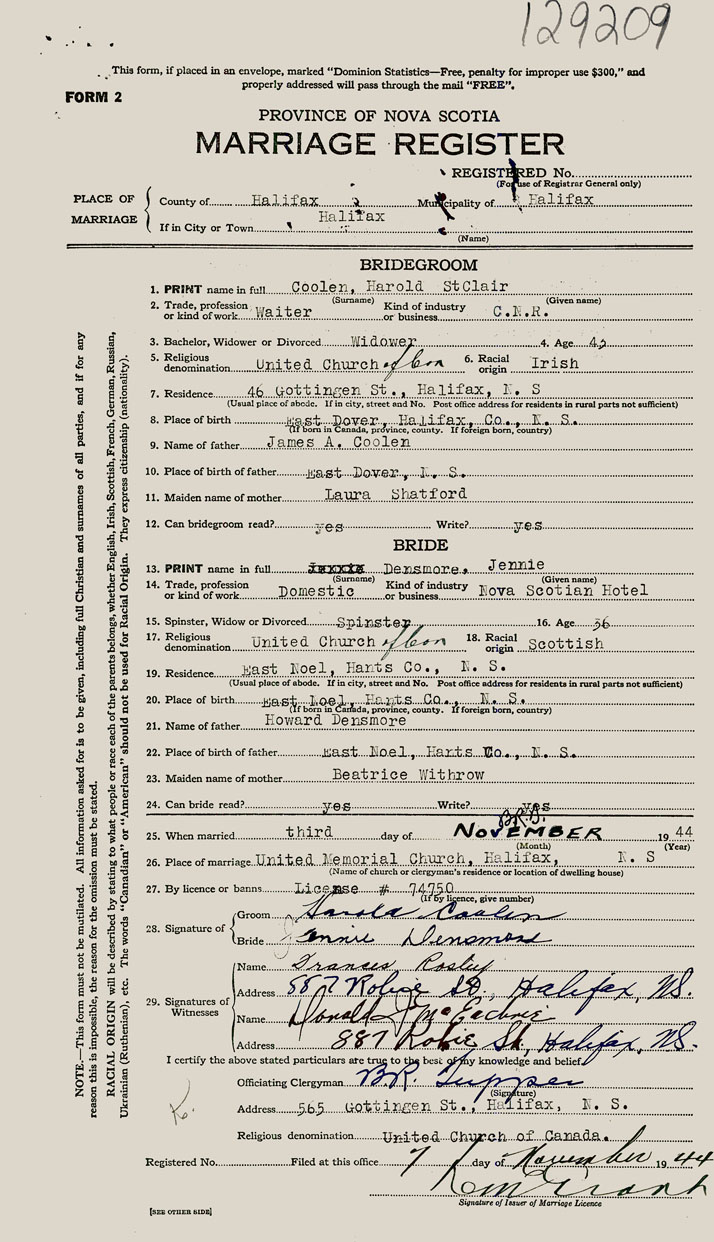 129209
This form, if placed in an envelope, marked "Dominion Statistics—Free, penalty for improper use $300," and
properly addressed will pass through the mail "FREE".
FORM 2
PROVINCE OF NOVA SCOTIA
MARRIAGE REGISTER
REGISTERED No.
(For use of Registrar General only)
PLACE OF MARRIAGE
County of Halifax Municipality of Halifax
If in City or Town Halifax
(Name)
BRIDEGROOM
1. PRINT name in full Coolen, Harold StClair
(Surname) (Given name)
2. Trade, profession or kind of work Waiter Kind of industry or business C.N.R.
3. Bachelor, Widower or Divorced Widower 4. Age
5. Religious denomination United Church of Can 6. Racial origin Irish
7. Residence 46 Gottingen St., Halifax, N. S
(Usual place of abode. If in city, street and No. Post office address for residents in rural parts not sufficient)
8. Place of birth East Dover, Halifax, Co., N. S.
(If born in Canada, province, county. If foreign born, country)
9. Name of father James A. Coolen
10. Place of birth of father East Dover, N. S.
11. Maiden name of mother Laura Shatford
12. Can bridegroom read? yes Write? yes
BRIDE
13. PRINT name in full Densmore, Jennie
(Surname) (Given name)
14. Trade, profession or kind of work Domestic Kind of industry or business Nova Scotian Hotel
15. Spinster, Widow or Divorced Spinster 16. Age 36
17. Religious denomination United Church of Can 18. Racial origin Scottish
19. Residence East Noel, Hants Co., N. S.
(Usual place of abode. If in city, street and No. Post office address for residents in rural parts not sufficient)
20. Place of birth East Noel, Hants Co., N. S.
(If born in Canada, province, county. If foreign born, country)
21. Name of father Howard Densmore
22. Place of birth of father East Noel, Hants Co., N. S.
23. Maiden name of mother Beatrice Withrow
24. Can bride read? yes Write? yes
B.R.T.
25. When married third day of NOVEMBER 1944
(Month) (Year)
26. Place of marriage United Memorial Church, Halifax, N. S
(Name of church or clergyman's residence or location of dwelling house)
27. By licence or banns License # 74750
(If by licence, give number)
28. Signature of
Groom Harold Coolen
Bride Jennie Densmore
29. Signatures of Witnesses
Name Frances
Address 887 Robie St, Halifax, N.S.
Name Donald J McEachne
Address 887 Robie St, Halifax, N.S.
I certify the above stated particulars are true to the best of my knowledge and belief.
Officiating Clergyman B.R. Tupper
(Signature)
Address 565 Gottingen St., Halifax, N. S.
K.
Religious denomination United Church of Canada.
Registered No. Filed at this office 7 day of November 1944
Signature of Issuer of Marriage Licence
[SEE OTHER SIDE]
NOTE.—This form must not be mutilated. All information asked for is to be given, including full Christian and surnames of all parties, and if for any
reason this is impossible, the reason for the omission must be stated.
RACIAL ORIGIN will be described by stating to what people or race each of the parents belongs, whether English, Irish, Scottish, French, German, Russian,
Ukrainian (Ruthenian), etc. The words "Canadian" or "American" should not be used for Racial Origin. They express citizenship (nationality).